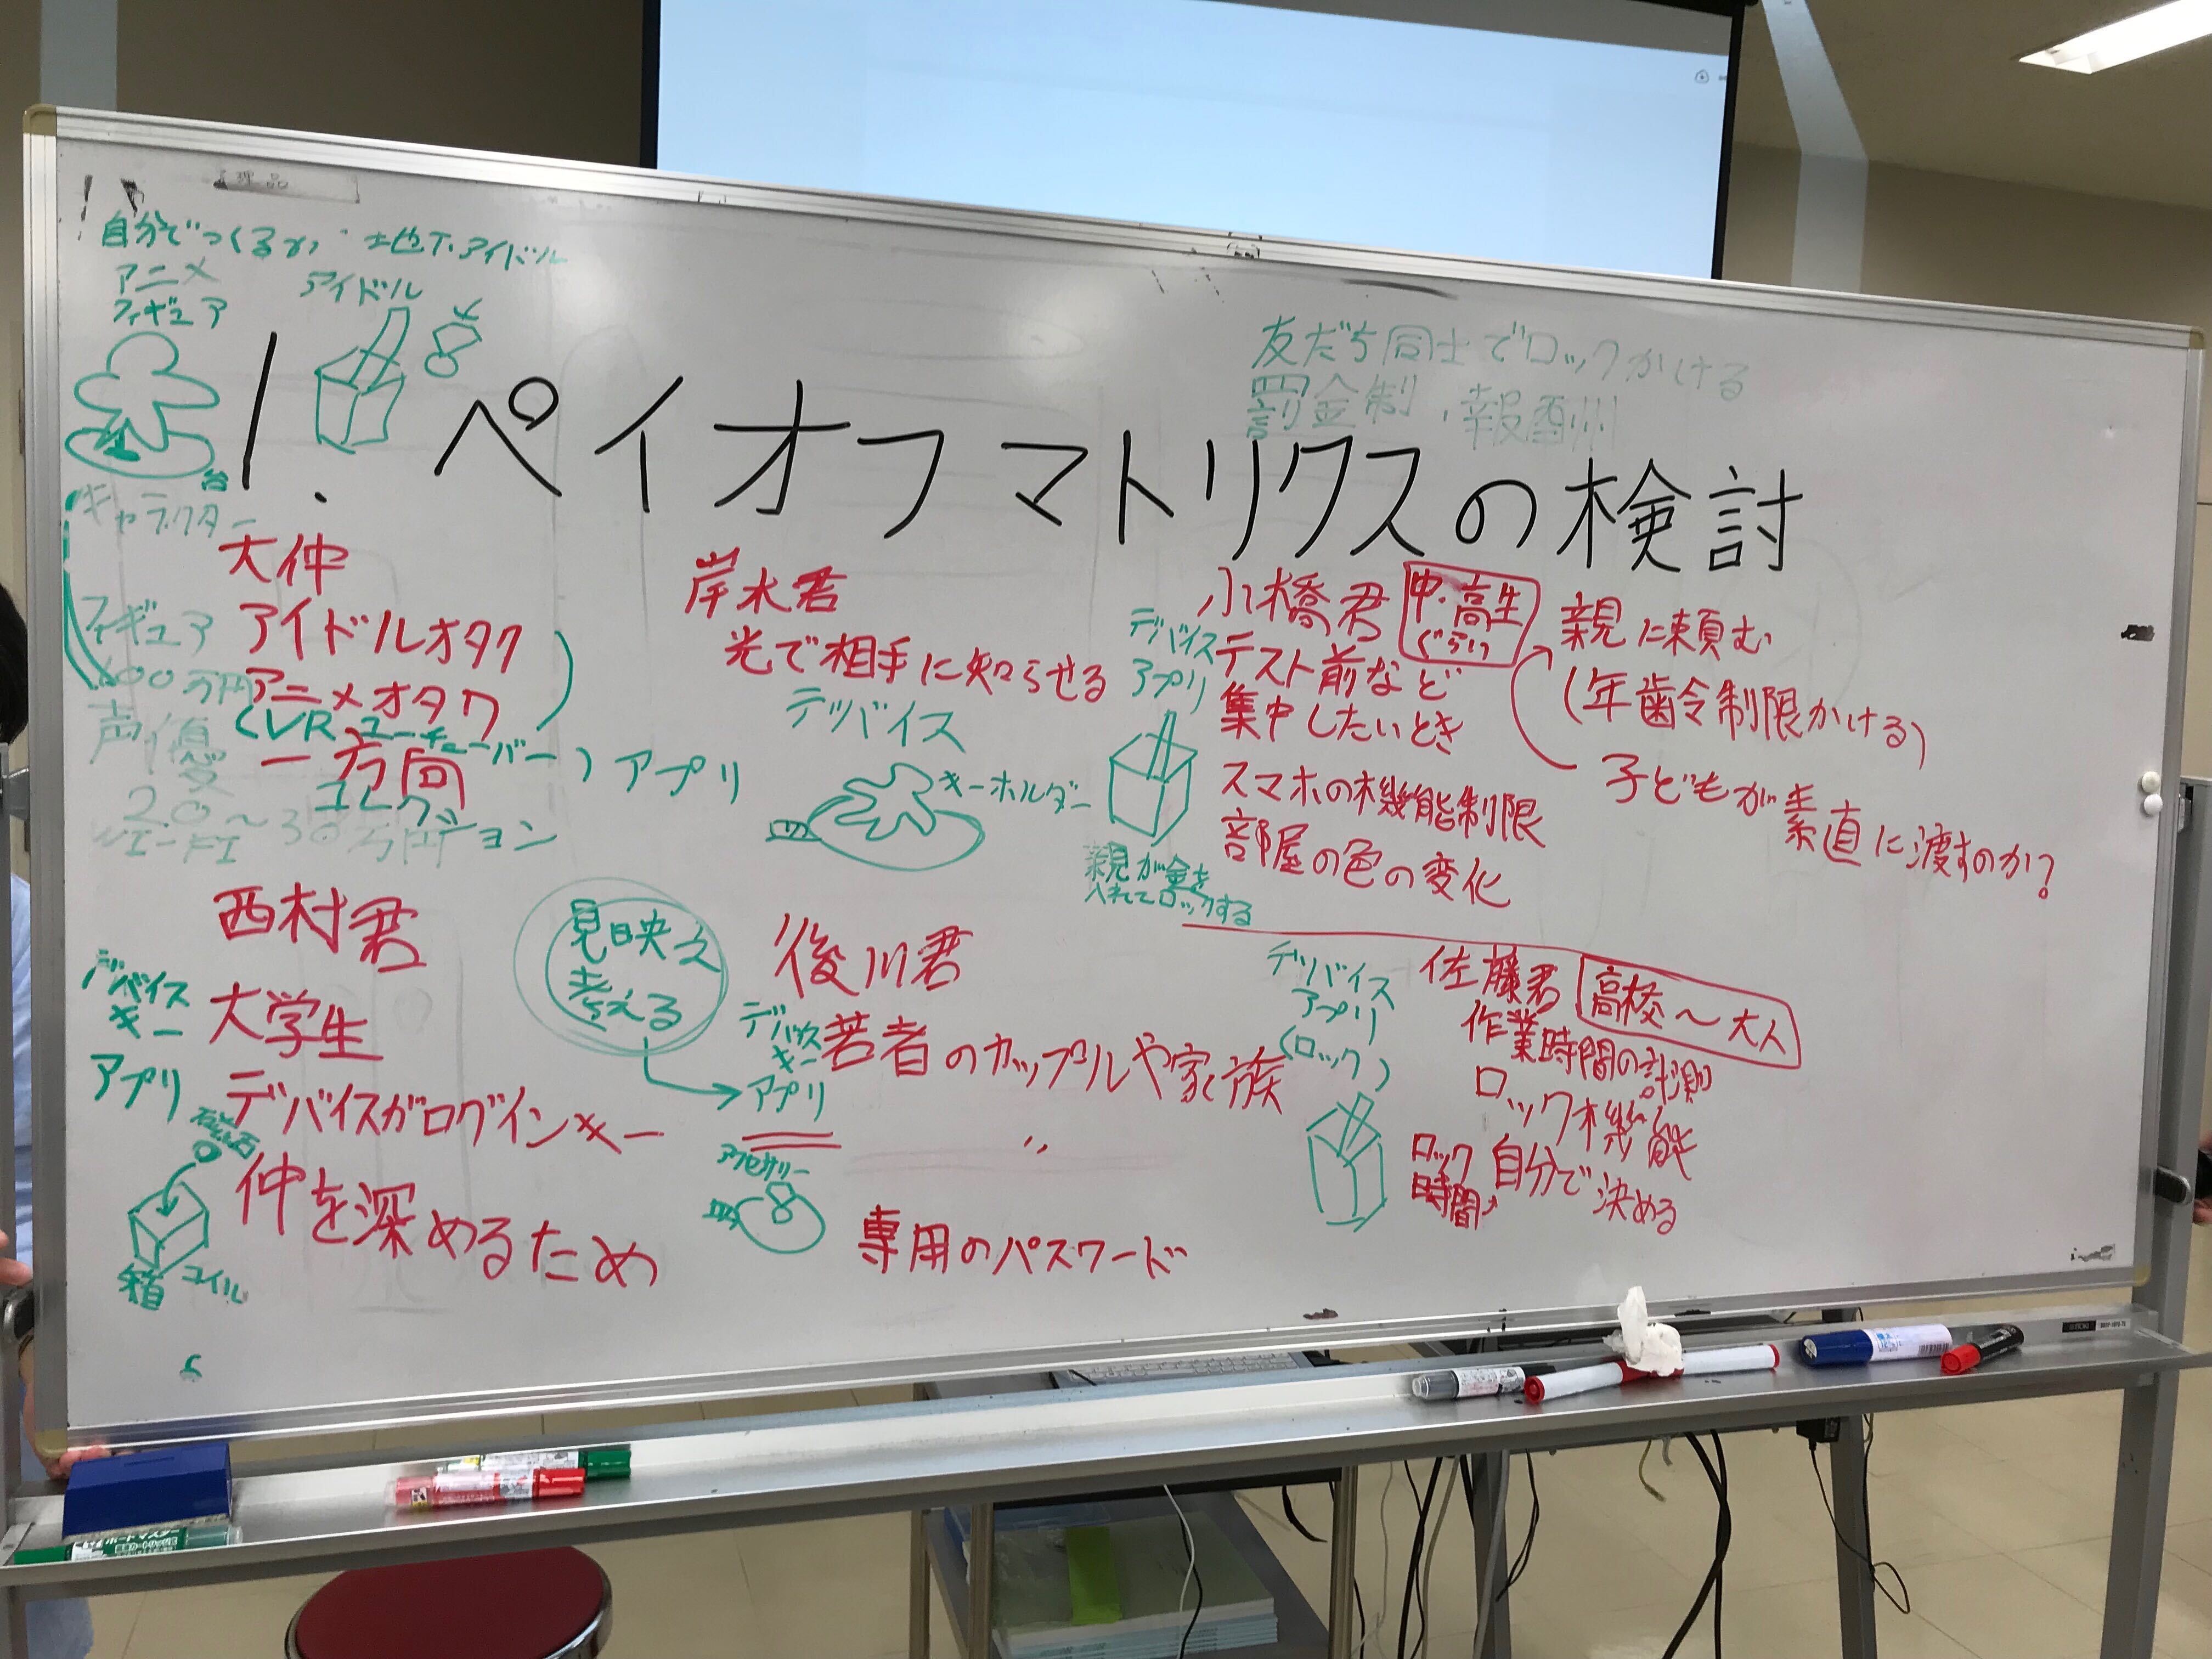 自分でつくるか
地下アイドル
アニメ
フィギュア
アイドル
台
1. ペイオフマトリクスの検討
友だち同士でロックかける
罰金制、報酬
キャラクター
大仲
アイドルオタク
アニメオタク
(VRユーチューバー)
一方向
コレクション
アプリ
フィギュア
600万円
声優
2.0～30万円
岸水君
光で相手に知らせる
デッバイス
キーホルダー
小橋君
中・高生
ぐらい
デバイス
アプリ
テスト前など
集中したいとき
スマホの機能制限
部屋の色の変化
親が金を
入れてロックする
親に頼む
(年齢制限かける)
子どもが素直に渡すのか?
西村君
デバイス
キー
アプリ
大学生
デバイスがログインキー
仲を深めるため
箱
コイル
見映え
考える
後川君
デバイス
キー
アプリ
若者のカップルや家族
〃
アクセサリー
専用のパスワード
デッバイス
アプリ
(ロック)
佐藤君
高校～大人
作業時間の計測
ロック機能
ロック
時間
自分で決める